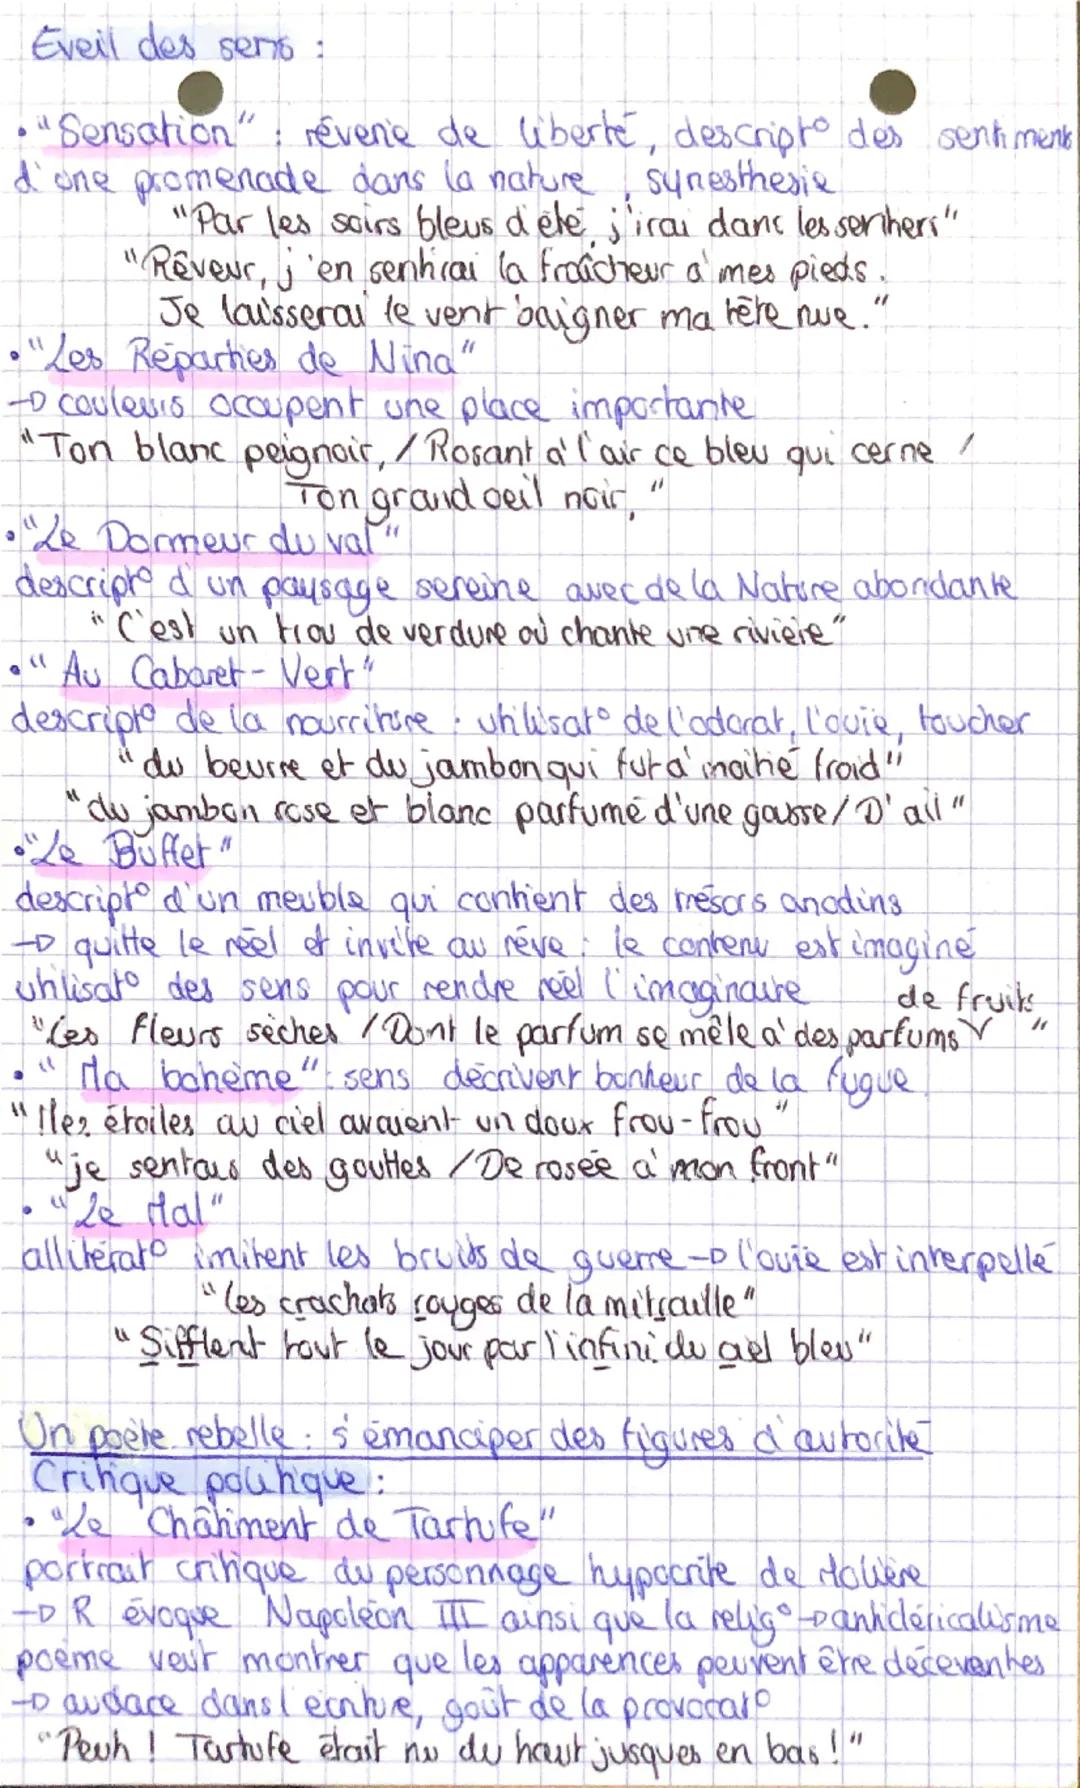 Éveil des sens :
• "Sensation" : rêverie de liberté, descript° des sentiments
d'une promenade dans la nature, synesthésie
"Par les soirs bleus d'été, j'irai dans les sentiers"
"Rêveur, j'en sentirai la fraîcheur à mes pieds.
Je laisserai le vent baigner ma tête nue."
• "Les Réparties de Nina"
→ couleurs occupent une place importante
"Ton blanc peignoir, / Rosant à l'air ce bleu qui cerne /
Ton grand oeil noir,"
• "Le Dormeur du val"
descript° d'un paysage sereine avec de la Nature abondante
"C'est un trou de verdure où chante une rivière"
• "Au Cabaret-Vert"
descript° de la nourriture : utilisat° de l'odorat, l'ouïe, toucher
"du beurre et du jambon qui fut à moitié froid"
"du jambon rose et blanc parfumé d'une gousse / D'ail"
• "Le Buffet"
descript° d'un meuble qui contient des trésors anodins
→ quitte le réel et invite au rêve : le contenu est imaginé
utilisat° des sens pour rendre réel l'imaginaire
"Les fleurs sèches / Dont le parfum se mêle à des parfums de fruits"
• "Ma bohème" : sens décrivent bonheur de la fugue
"Mes étoiles au ciel avaient un doux frou-frou"
"je sentais des gouttes / De rosée à mon front"
• "Le Mal"
allitérat° imitent les bruits de guerre → l'ouïe est interpellé
"les crachats rouges de la mitraille"
"Sifflent tout le jour par l'infini du ciel bleu"
Un poète rebelle : s'émanciper des figures d'autorité
Critique politique :
• "Le Châtiment de Tartufe"
portrait critique du personnage hypocrite de Molière
→ R évoque Napoléon III ainsi que la relig° → anticléricalisme
poème veut montrer que les apparences peuvent être décevantes
→ audace dans l'écriture, goût de la provocat°
"Peuh ! Tartufe était nu du haut jusques en bas !"